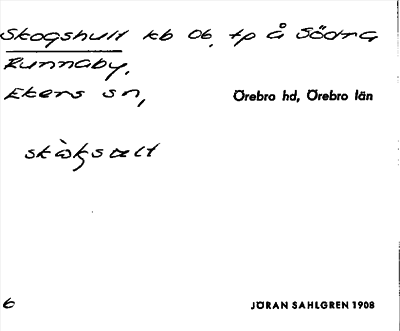 Skogshult kb 06, tp å Södra
Runnaby,
Ekers sn, Örebro hd, Örebro län
6 JÖRAN SAHLGREN 1908